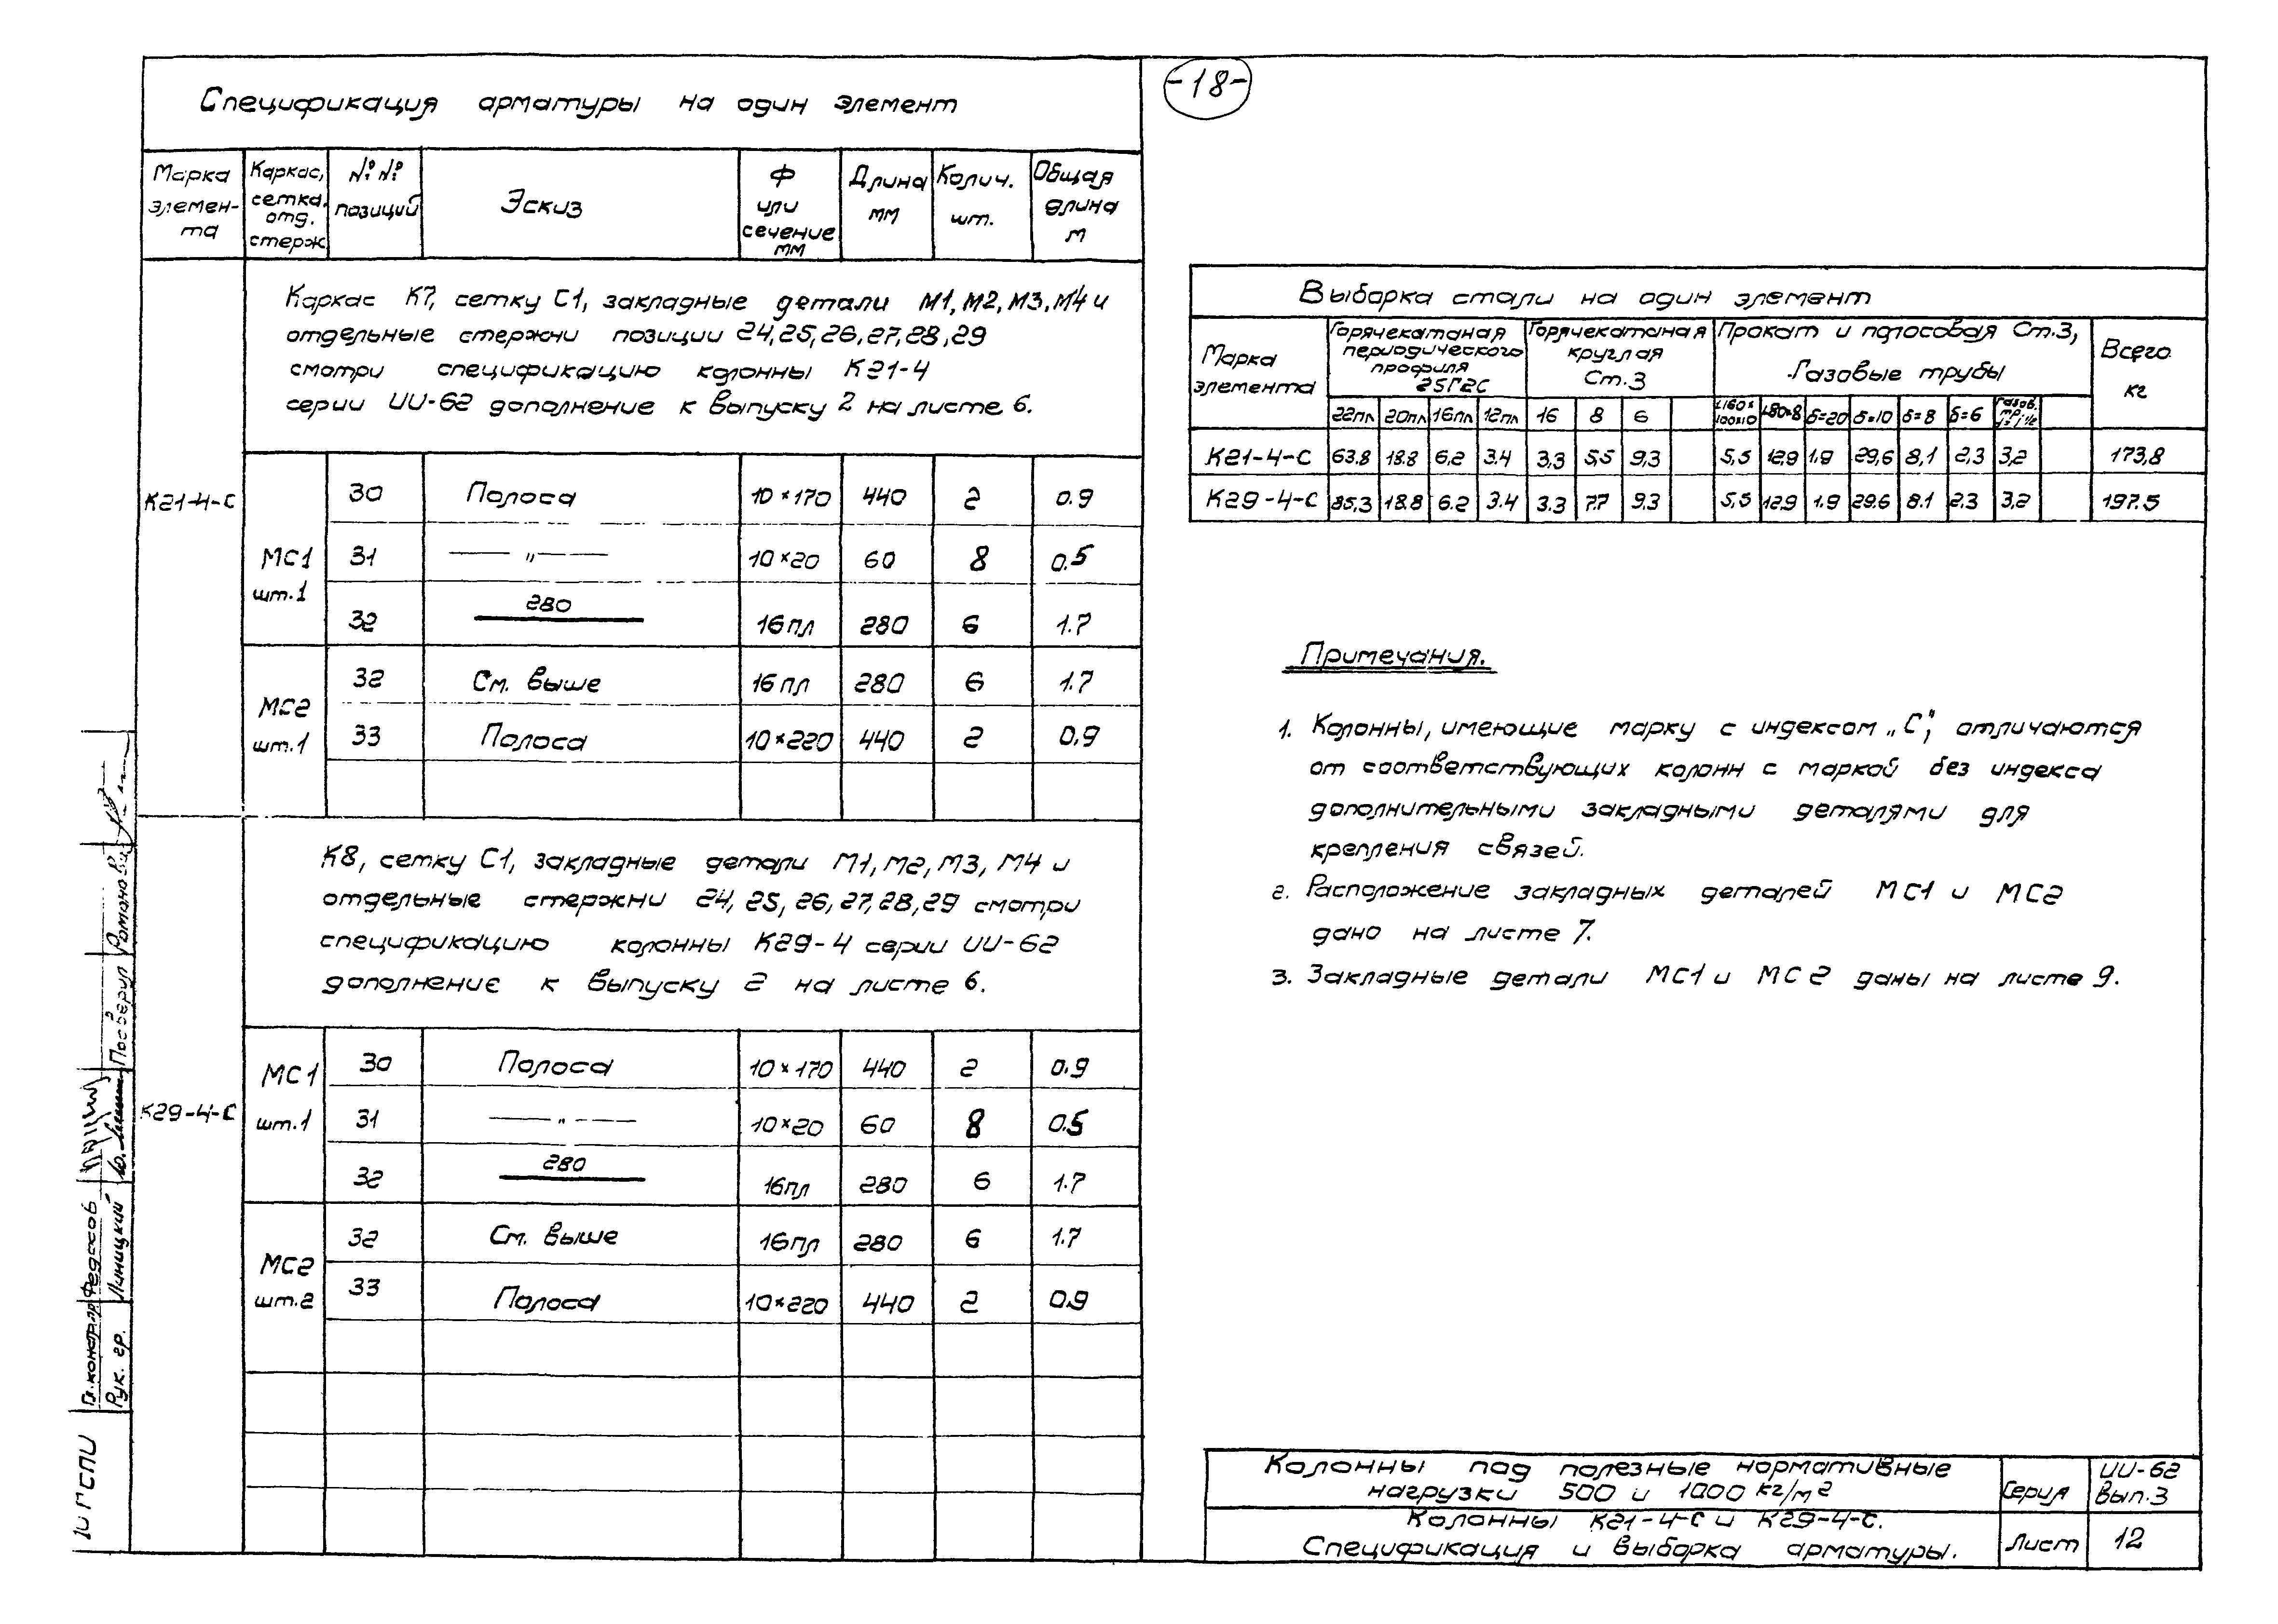 -18-
Спецификация арматуры на один элемент
Марка элемен-та | Каркас, сетка, отд. стерж. | №№ позиций | Эскиз | Ф или сечение мм | Длина мм | Колич. шт. | Общая длина м
К21-4-С
Каркас К7, сетку С1, закладные детали М1, М2, М3, М4 и
отдельные стержни позиции 24, 25, 26, 27, 28, 29
смотри спецификацию колонны К21-4
серии ИИ-62 дополнение к выпуску 2 на листе 6.
МС1 шт.1
30 | Полоса | 10×170 | 440 | 2 | 0.9
31 | — " — | 10×20 | 60 | 8 | 0.5
32 | 280 | 16пл | 280 | 6 | 1.7
МС2 шт.1
32 | См. выше | 16пл | 280 | 6 | 1.7
33 | Полоса | 10×220 | 440 | 2 | 0,9
К29-4-С
К8, сетку С1, закладные детали М1, М2, М3, М4 и
отдельные стержни 24, 25, 26, 27, 28, 29 смотри
спецификацию колонны К29-4 серии ИИ-62
дополнение к выпуску 2 на листе 6.
МС1 шт.1
30 | Полоса | 10×170 | 440 | 2 | 0.9
31 | — " — | 10×20 | 60 | 8 | 0.5
32 | 280 | 16пл | 280 | 6 | 1.7
МС2 шт.2
32 | См. выше | 16пл | 280 | 6 | 1.7
33 | Полоса | 10×220 | 440 | 2 | 0.9
Выборка стали на один элемент
Марка элемента | Горячекатаная периодического профиля 25Г2С | Горячекатаная круглая Ст.3 | Прокат и полосовая Ст.3, Газовые трубы | Всего кг
22пл | 20пл | 16пл | 12пл | 16 | 8 | 6 | L160×100×10 | L80×8 | δ=20 | δ=10 | δ=8 | δ=6 | Газов. тр.
К21-4-С | 63.8 | 18.8 | 6.2 | 3.4 | 3,3 | 5,5 | 9,3 | 5,5 | 12,9 | 1.9 | 29,6 | 8,1 | 2,3 | 3,2 | 173,8
К29-4-С | 85,3 | 18.8 | 6.2 | 3.4 | 3.3 | 7.7 | 9.3 | 5,5 | 12.9 | 1.9 | 29.6 | 8.1 | 2.3 | 3,2 | 197.5
Примечания.
1. Колонны, имеющие марку с индексом „С", отличаются
от соответствующих колонн с маркой без индекса
дополнительными закладными деталями для
крепления связей.
2. Расположение закладных деталей МС1 и МС2
дано на листе 7.
3. Закладные детали МС1 и МС2 даны на листе 9.
Колонны под полезные нормативные
нагрузки 500 и 1000 кг/м²
Серия
ИИ-62
Вып.3
Колонны К21-4-С и К29-4-С.
Спецификация и выборка арматуры.
Лист
12
Гл.констр.пр. Федосов
Рук. гр. Линицкий
Проверил Романова
ГСПИ